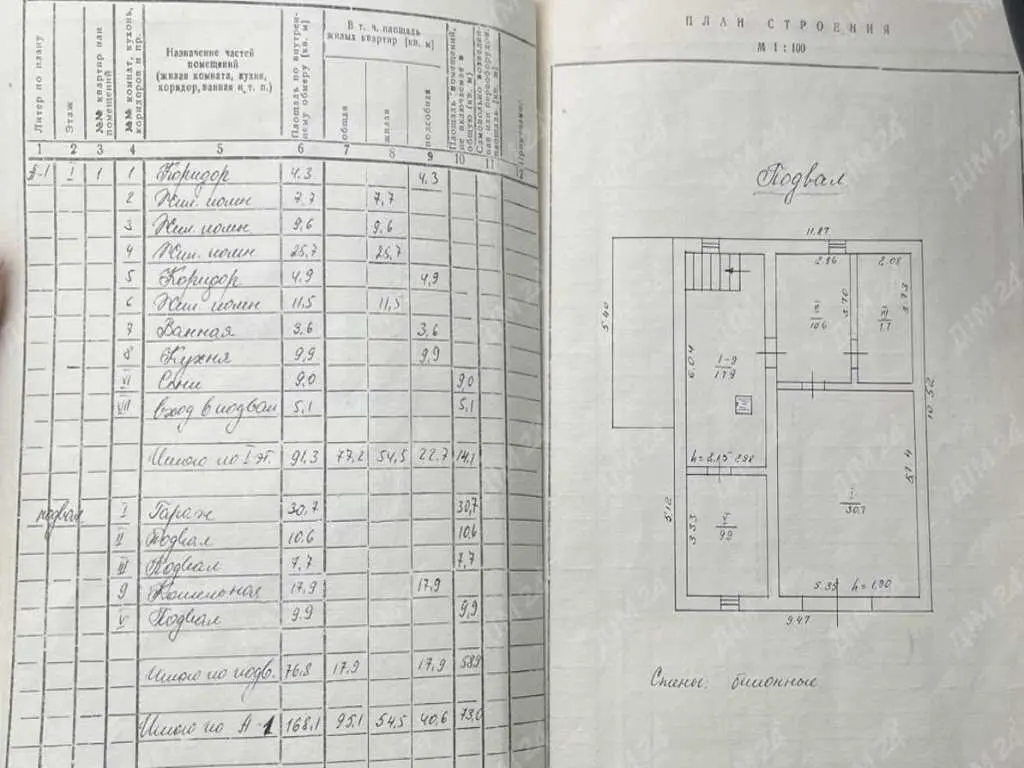 Литер по плану
Этаж
№№ квартир или помещений
№№ комнат, кухонь, коридоров и пр.
Назначение частей
помещений
(жилая комната, кухня,
коридор, ванная и т. п.)
Площадь по внутреннему обмеру [кв. м]
В т. ч. площадь
жилых квартир [кв. м]
общая
жилая
подсобная
Площадь помещений, не включаемая в общую [кв. м]
Самовольно возведенная или переоборудов. площадь [кв. м]
Примечание
1 2 3 4 5 6 7 8 9 10 11 12
I 1 1 Коридор 4.3 4.3
2 Жил. комн 7,7 7,7
3 Жил. комн 9.6 9.6
4 Жил. комн 25,7 25,7
5 Коридор 4.9 4,9
6 Жил. комн 11,5 11,5
7 Ванная 3,6 3,6
8 Кухня 9,9 9,9
VI Сени 9,0 9,0
VII вход в подвал 5,1 5,1
Итого по I эт. 91,3 77,2 54,5 22.7 14,1
подвал I Гараж 30,7 30,7
II Подвал 10.6 10,6
III Подвал 7,7 7,7
9 Котельная 17,9 17,9
V Подвал 9.9 9,9
Итого по подв. 76.8 17,9 17,9 58,9
Итого по А-1 168,1 95,1 54,5 40,6 73,0
ПЛАН СТРОЕНИЯ
М 1 : 100
Подвал
11.87
2.86 2.08
5.40
3.70
3.73
6.04
1-9
17.9
II
10.6
III
7.7
10.52
h=2.15 2.98
5.12
3.33
V
9.9
I
30.7
5.74
5.35 h=1.90
9.47
Стены: бетонные
ДІМ 24